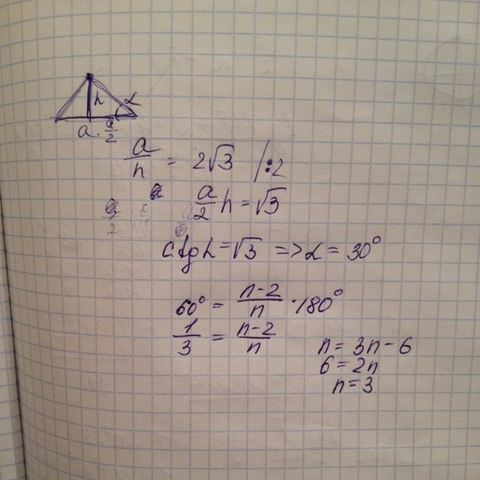 h α
a a/2
a/h = 2√3 /:2
a/2 h = √3
ctg α = √3 => α = 30°
60° = n-2/n · 180°
1/3 = n-2/n
n = 3n - 6
6 = 2n
n = 3